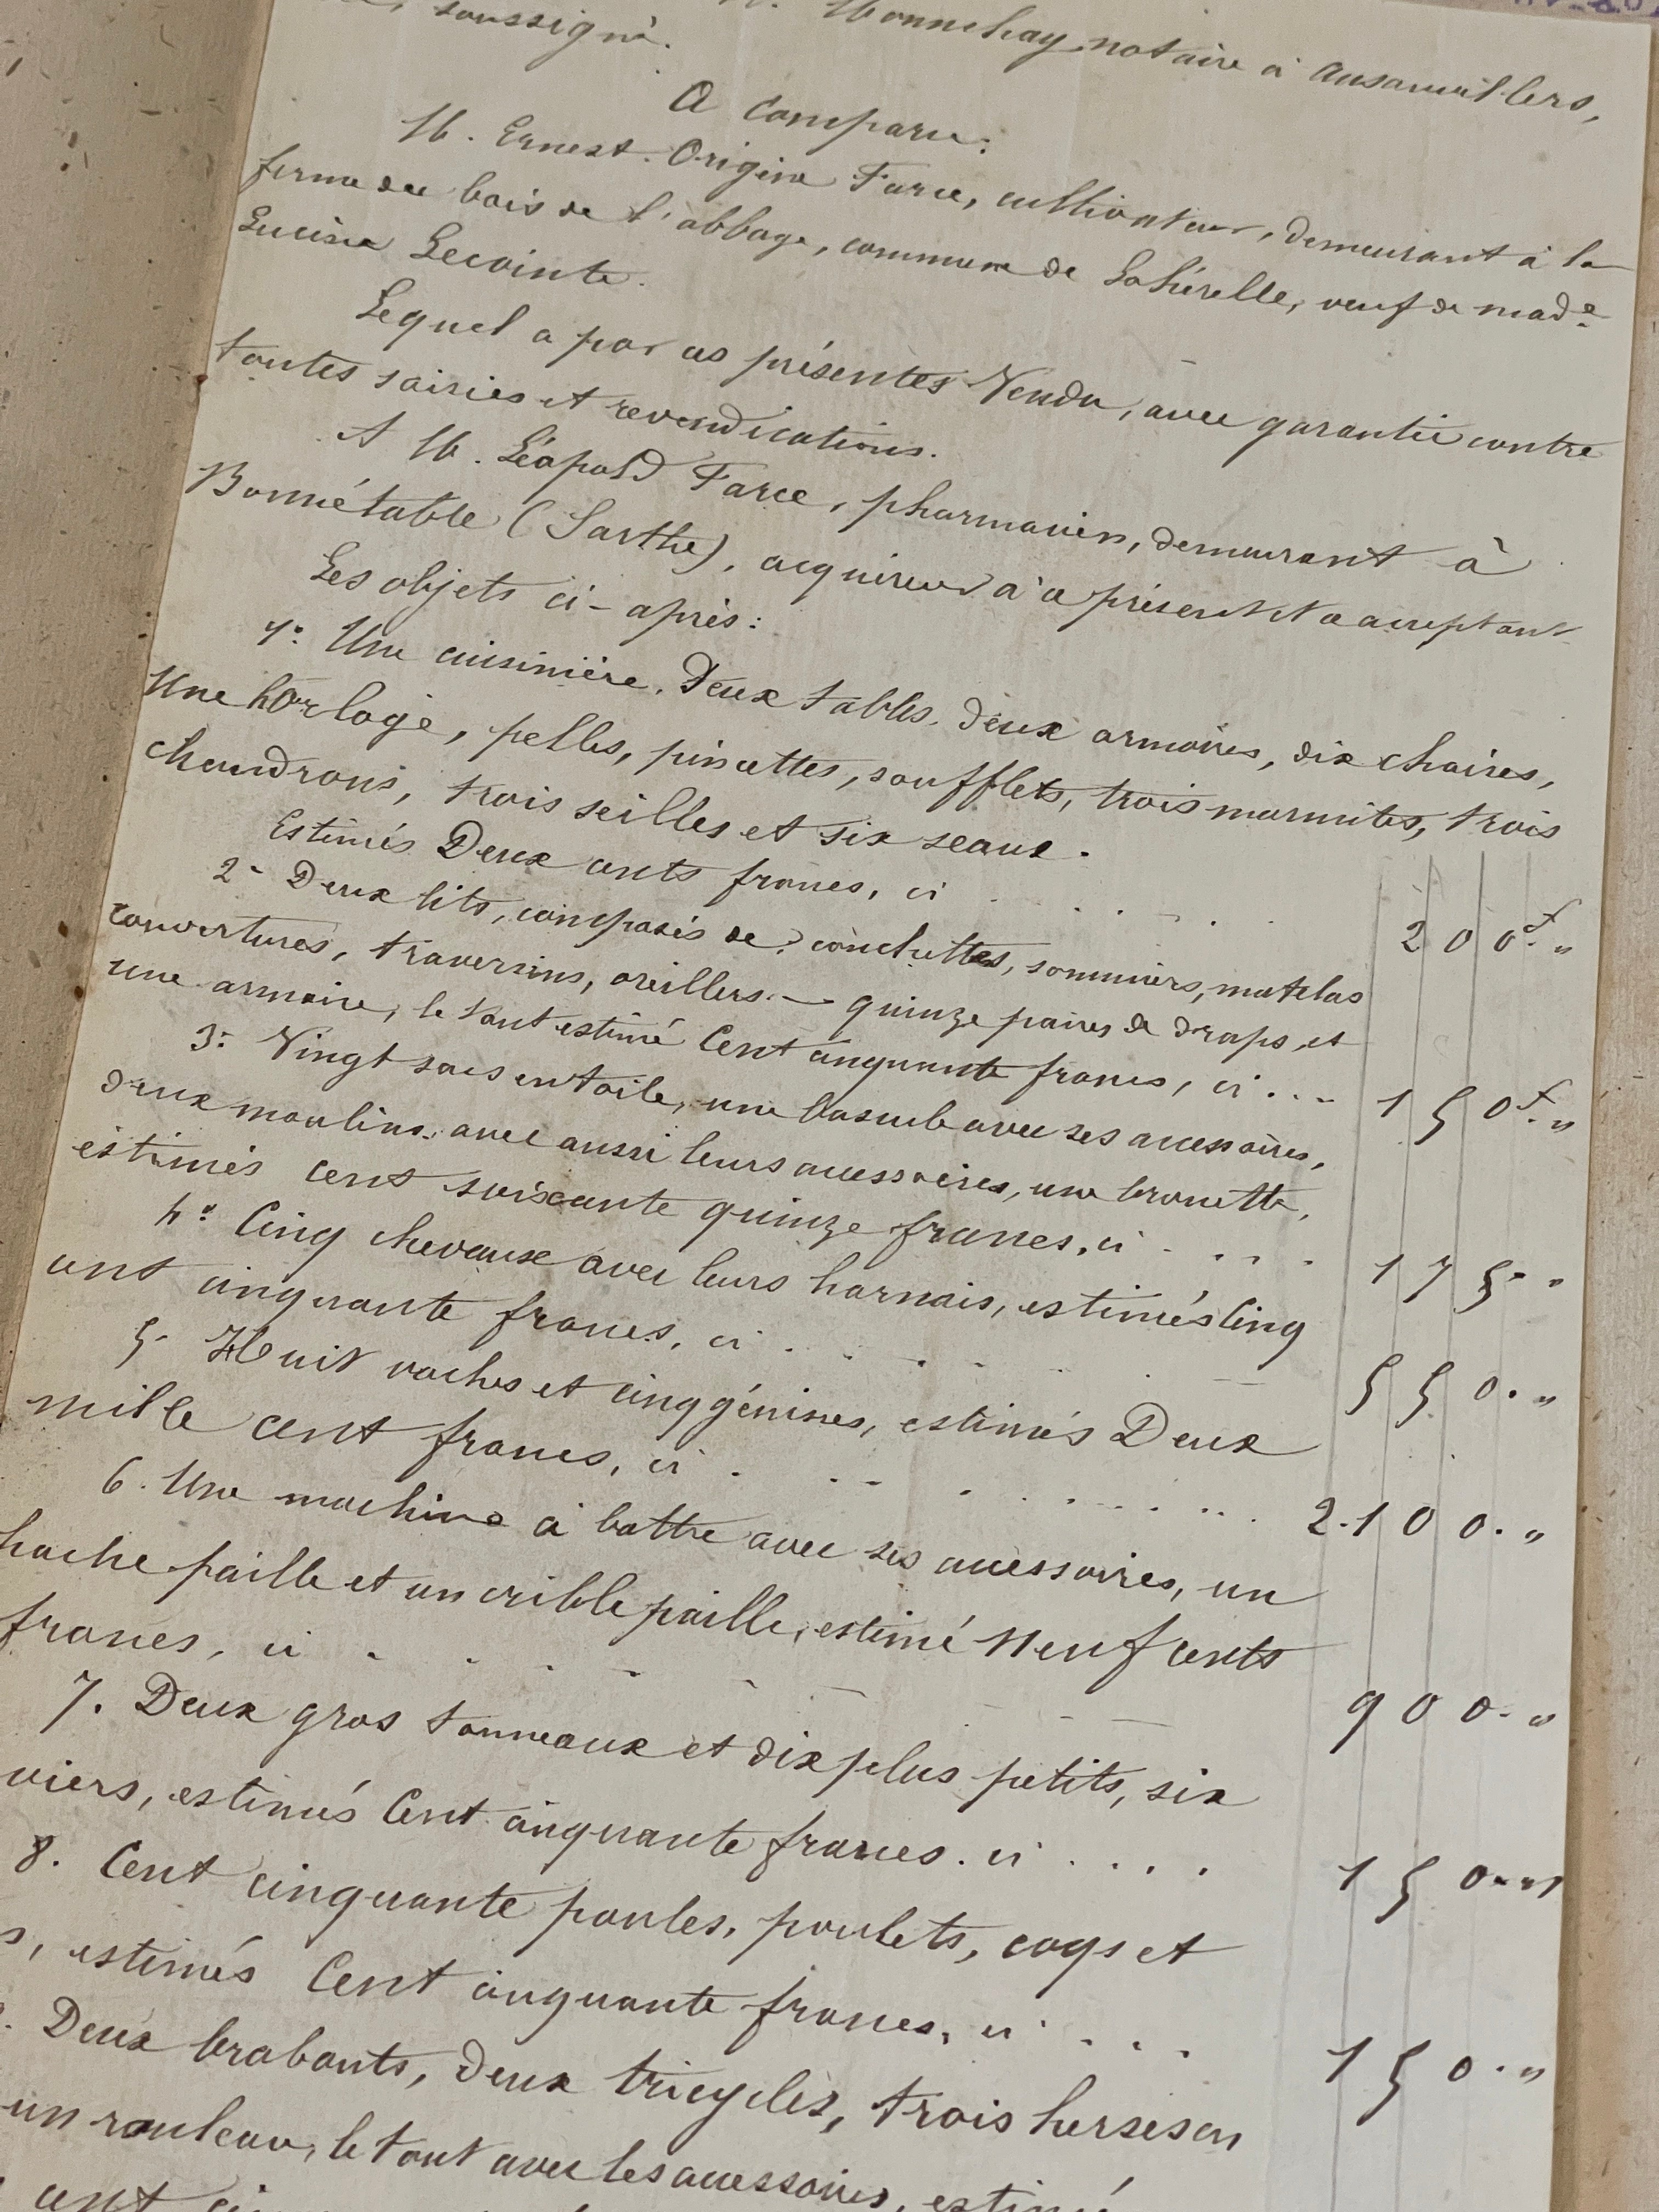 soussigné.
notaire à Ansauvillers,
A Comparu:
M. Ernest Origène Farce, cultivateur, demeurant à la
ferme du bois de l'abbaye, commune de Lahérelle, veuf de mad.e
Lucine Lecointe.
Lequel a par ces présentes Vendu, avec garantie contre
toutes saisies et revendications.
A M. Léopold Farce, pharmacien, demeurant à
Bonnétable (Sarthe), acquéreur à ce présent et ce acceptant
Les objets ci-après:
1º. Une cuisinière, Deux tables, deux armoires, dix chaises,
Une horloge, pelles, pincettes, soufflets, trois marmites, trois
chaudrons, trois seilles et six seaux.
Estimés Deux cents francs, ci . . . . . 200f. "
2- Deux lits, composés de couchettes, sommiers, matelas
couvertures, traversins, oreillers. — quinze paires de draps, et
une armoire, le tout estimé Cent cinquante francs, ci . . . 150f. "
3- Vingt sacs en toile, une bascule avec ses accessoires,
deux moulins, avec aussi leurs accessoires, une brouette,
estimés cent soixante quinze francs, ci . . . . 175. "
4º Cinq chevaux avec leurs harnais, estimés Cinq
cent cinquante francs, ci . . . . . 550. "
5- Huit vaches et cinq génisses, estimés Deux
mille cent francs, ci . . . . . . . . 2.100. "
6. Une machine à battre avec ses accessoires, un
hache paille et un crible paille, estimé Neuf cents
francs, ci . . . . . . 900. "
7. Deux gros tonneaux et dix plus petits, six
viers, estimés Cent cinquante francs. ci . . . . 150. "
8. Cent cinquante poules, poulets, coqs et
s, estimés Cent cinquante francs, ci . . . 150. "
. Deux brabants, deux tricycles, trois herses en
un rouleau, le tout avec les accessoires, estimé
cent